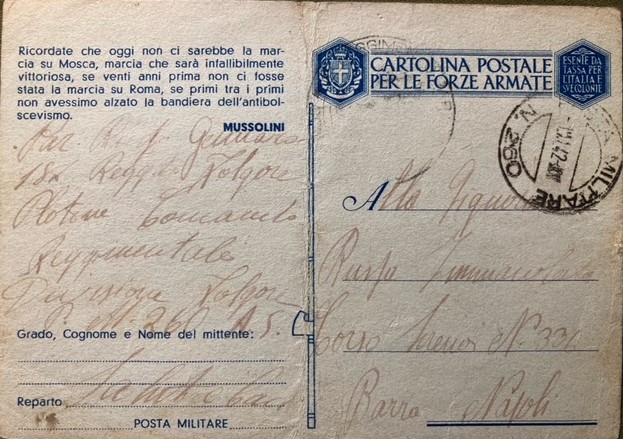 Ricordate che oggi non ci sarebbe la mar-
cia su Mosca, marcia che sarà infallibilmente
vittoriosa, se venti anni prima non ci fosse
stata la marcia su Roma, se primi tra i primi
non avessimo alzato la bandiera dell'antibol-
scevismo.
MUSSOLINI
Par Gennaro
Folgore
Plotone Comando
Reggimentale
Divisione Folgore
P. M. 260 A. S.
Grado, Cognome e Nome del mittente:
Reparto
POSTA MILITARE
CARTOLINA POSTALE
PER LE FORZE ARMATE
ESENTE DA
TASSA PER
L'ITALIA E
SVE COLONIE
POSTA MILITARE
N. 260
Alla Signora
Immacolata
Corso N° 331
Barra Napoli